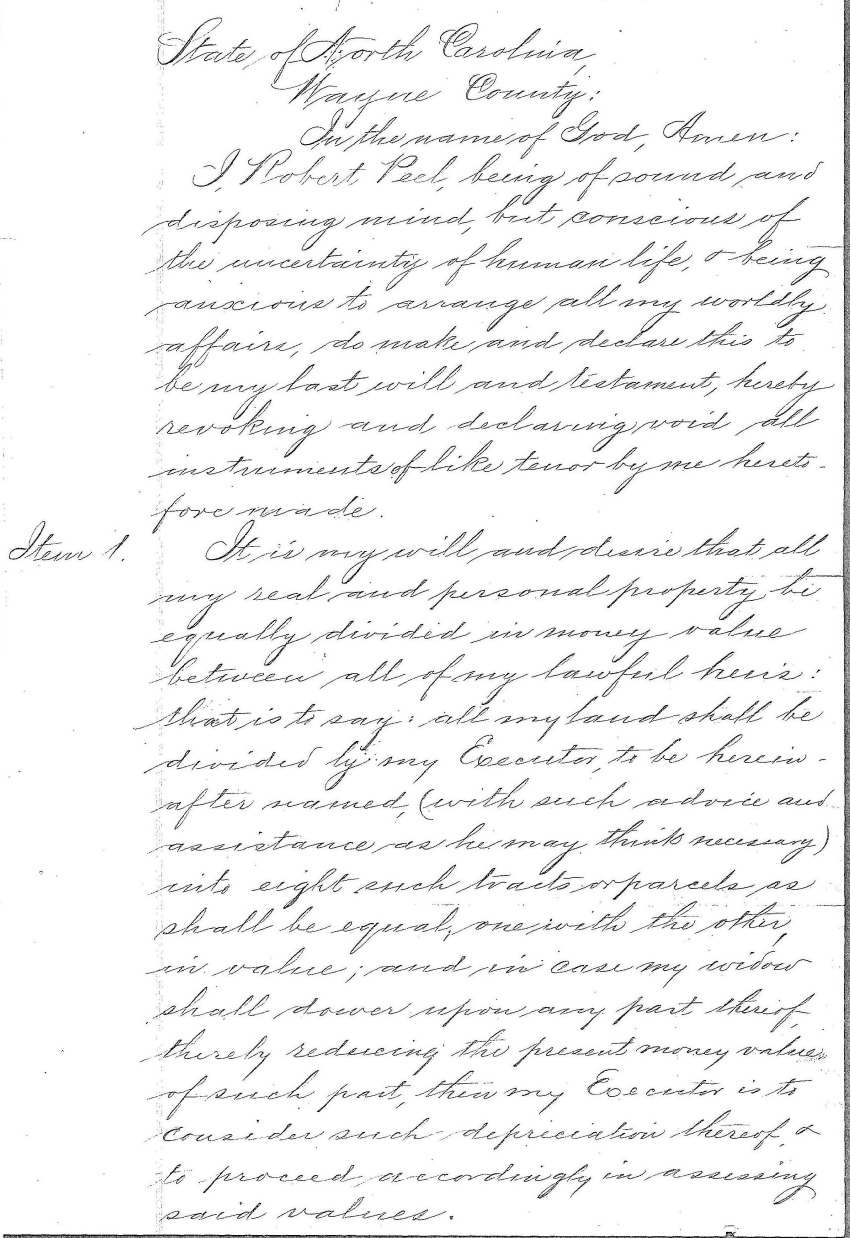 State of North Carolina,
Wayne County:
In the name of God, Amen:
I, Robert Peel, being of sound and
disposing mind, but conscious of
the uncertainty of human life, & being
anxious to arrange all my worldly
affairs, do make and declare this to
be my last will and testament, hereby
revoking and declaring void all
instruments of like tenor by me hereto-
fore made.
Item 1. It is my will and desire that all
my real and personal property be
equally divided in money value
between all of my lawful heirs:
that is to say: all my land shall be
divided by my Executor, to be herein-
after named, (with such advice and
assistance as he may think necessary)
into eight such tracts or parcels as
shall be equal, one with the other,
in value; and in case my widow
shall dower upon any part thereof,
thereby reducing the present money value
of such part, then my Executor is to
consider such depreciation thereof, &
to proceed accordingly in assessing
said values.